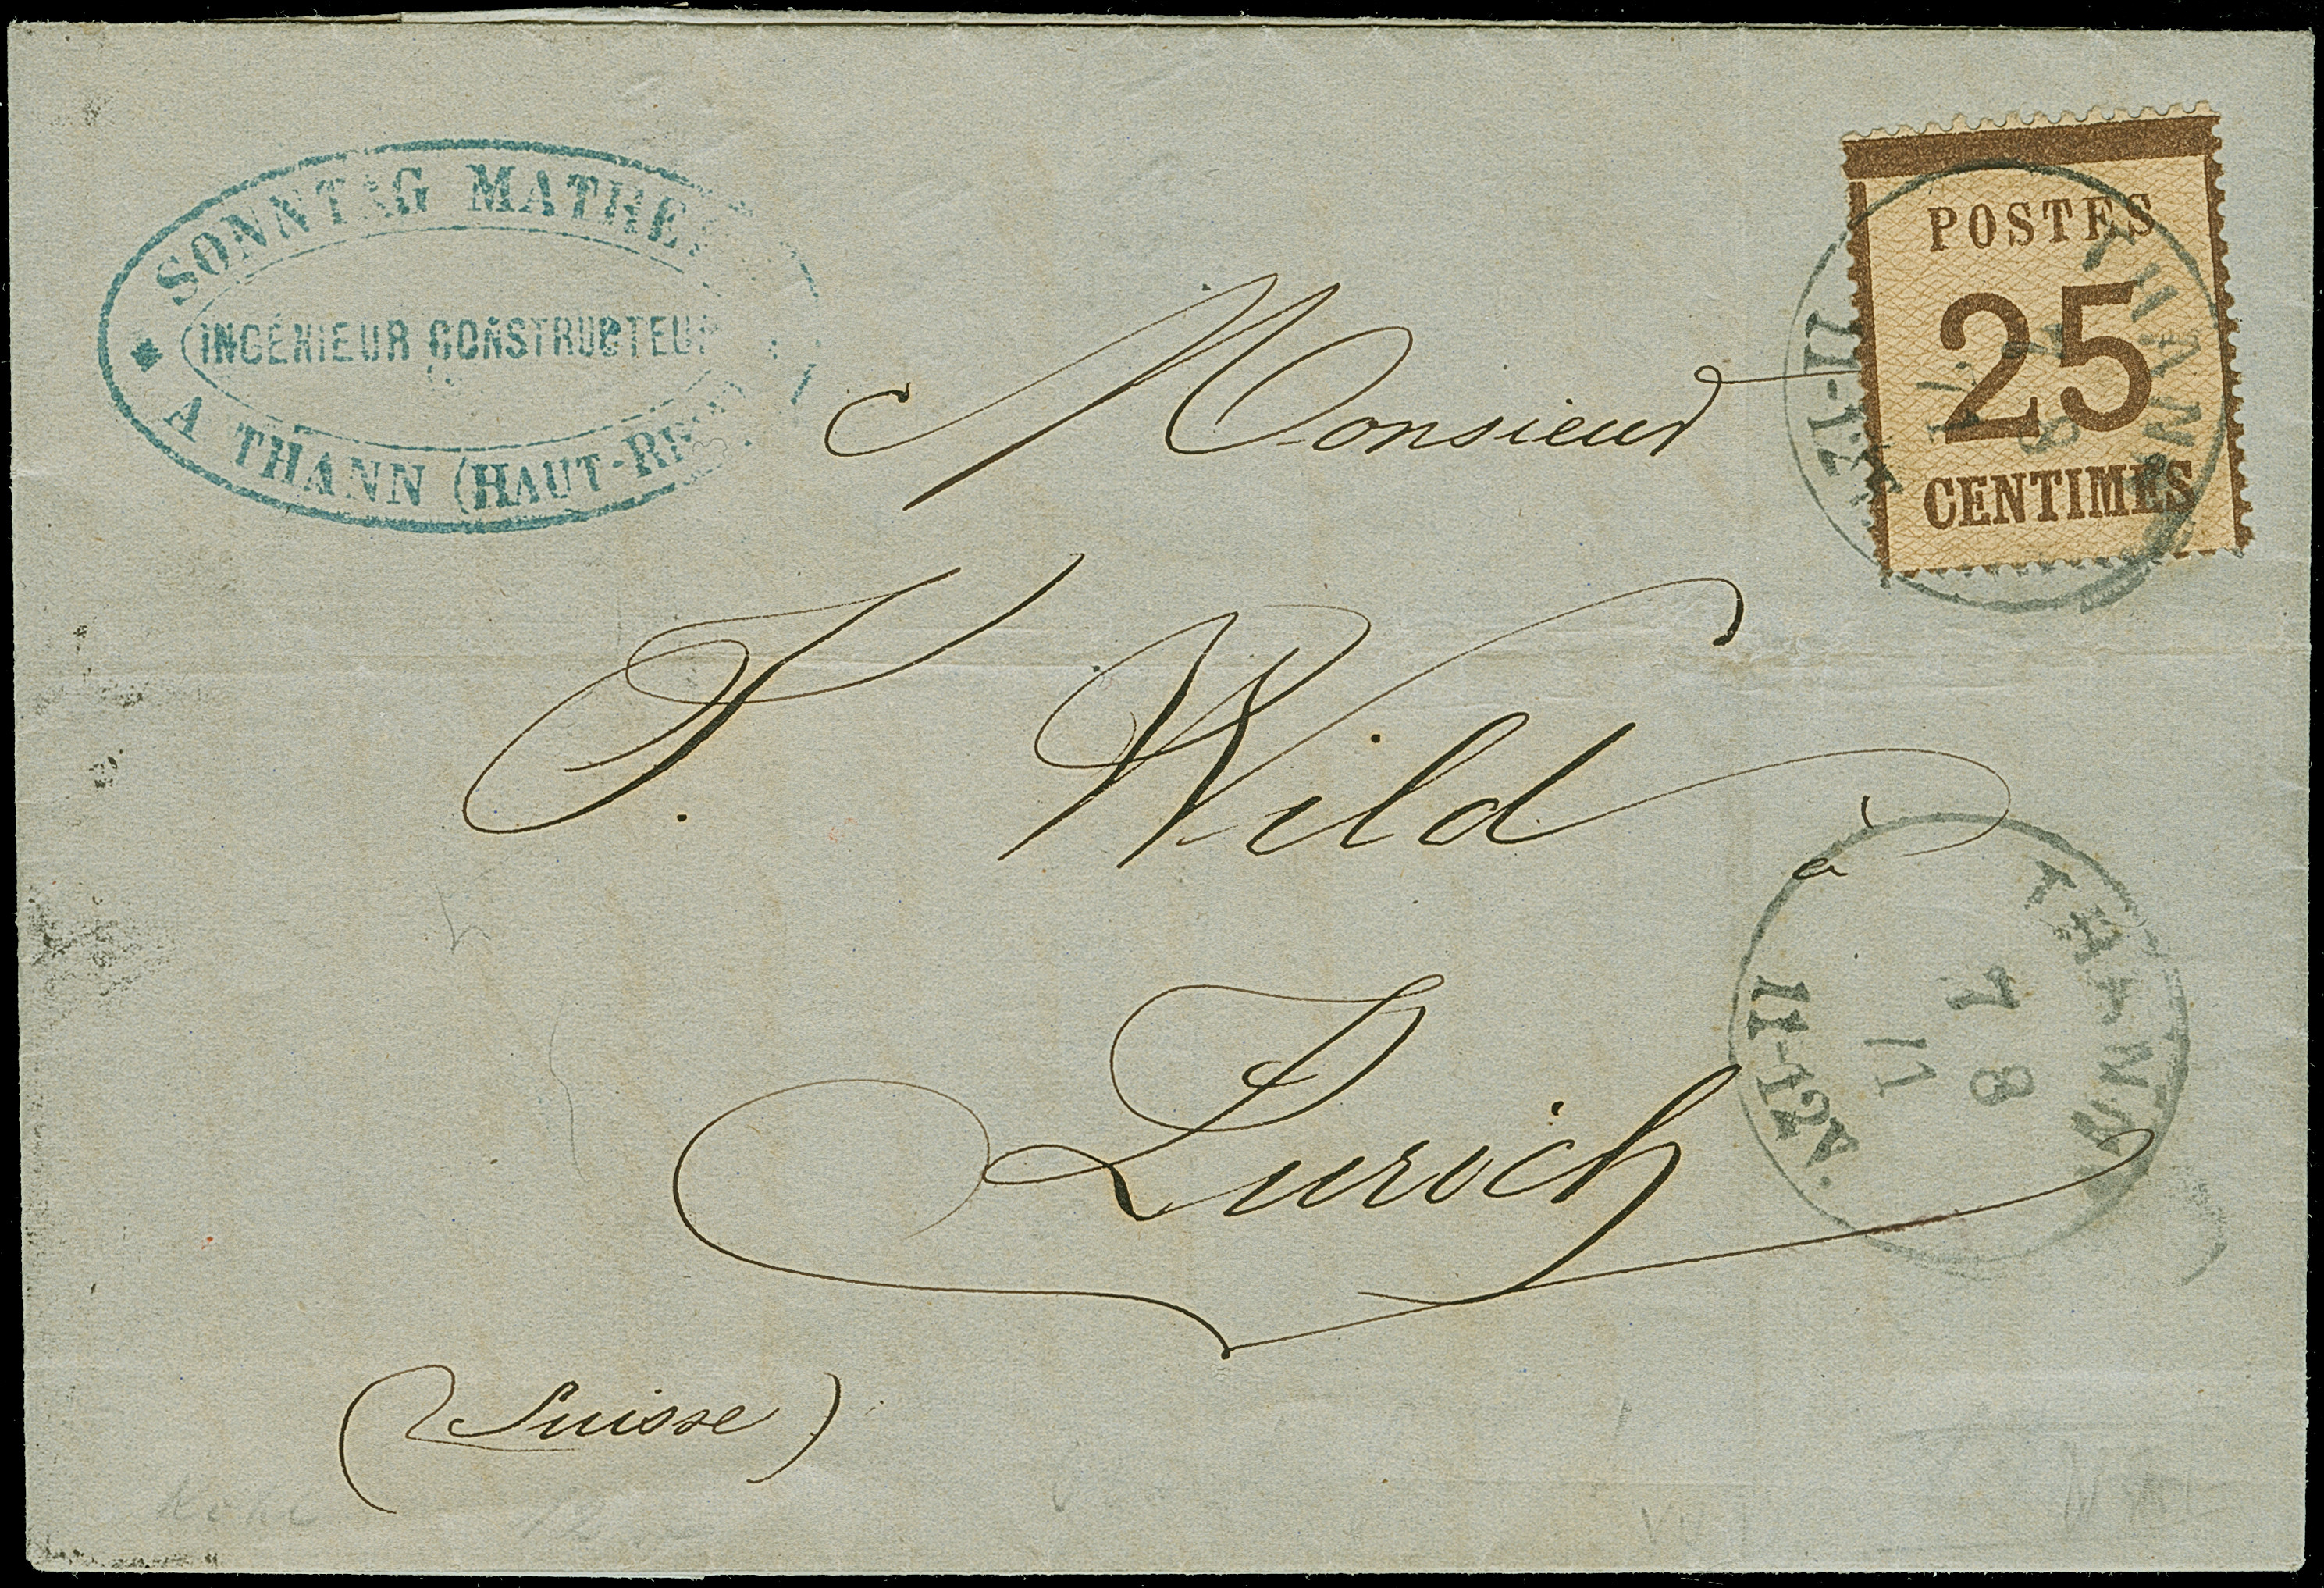 SONNTAG
INGÉNIEUR CONSTRUCTEUR
A THANN (HAUT-RHIN)
POSTES
25
CENTIMES
THANN
7
8
11-12 V.
Monsieur
J. Wild
à
THANN
7
8
11
11-12 V.
Zurich
(Suisse)